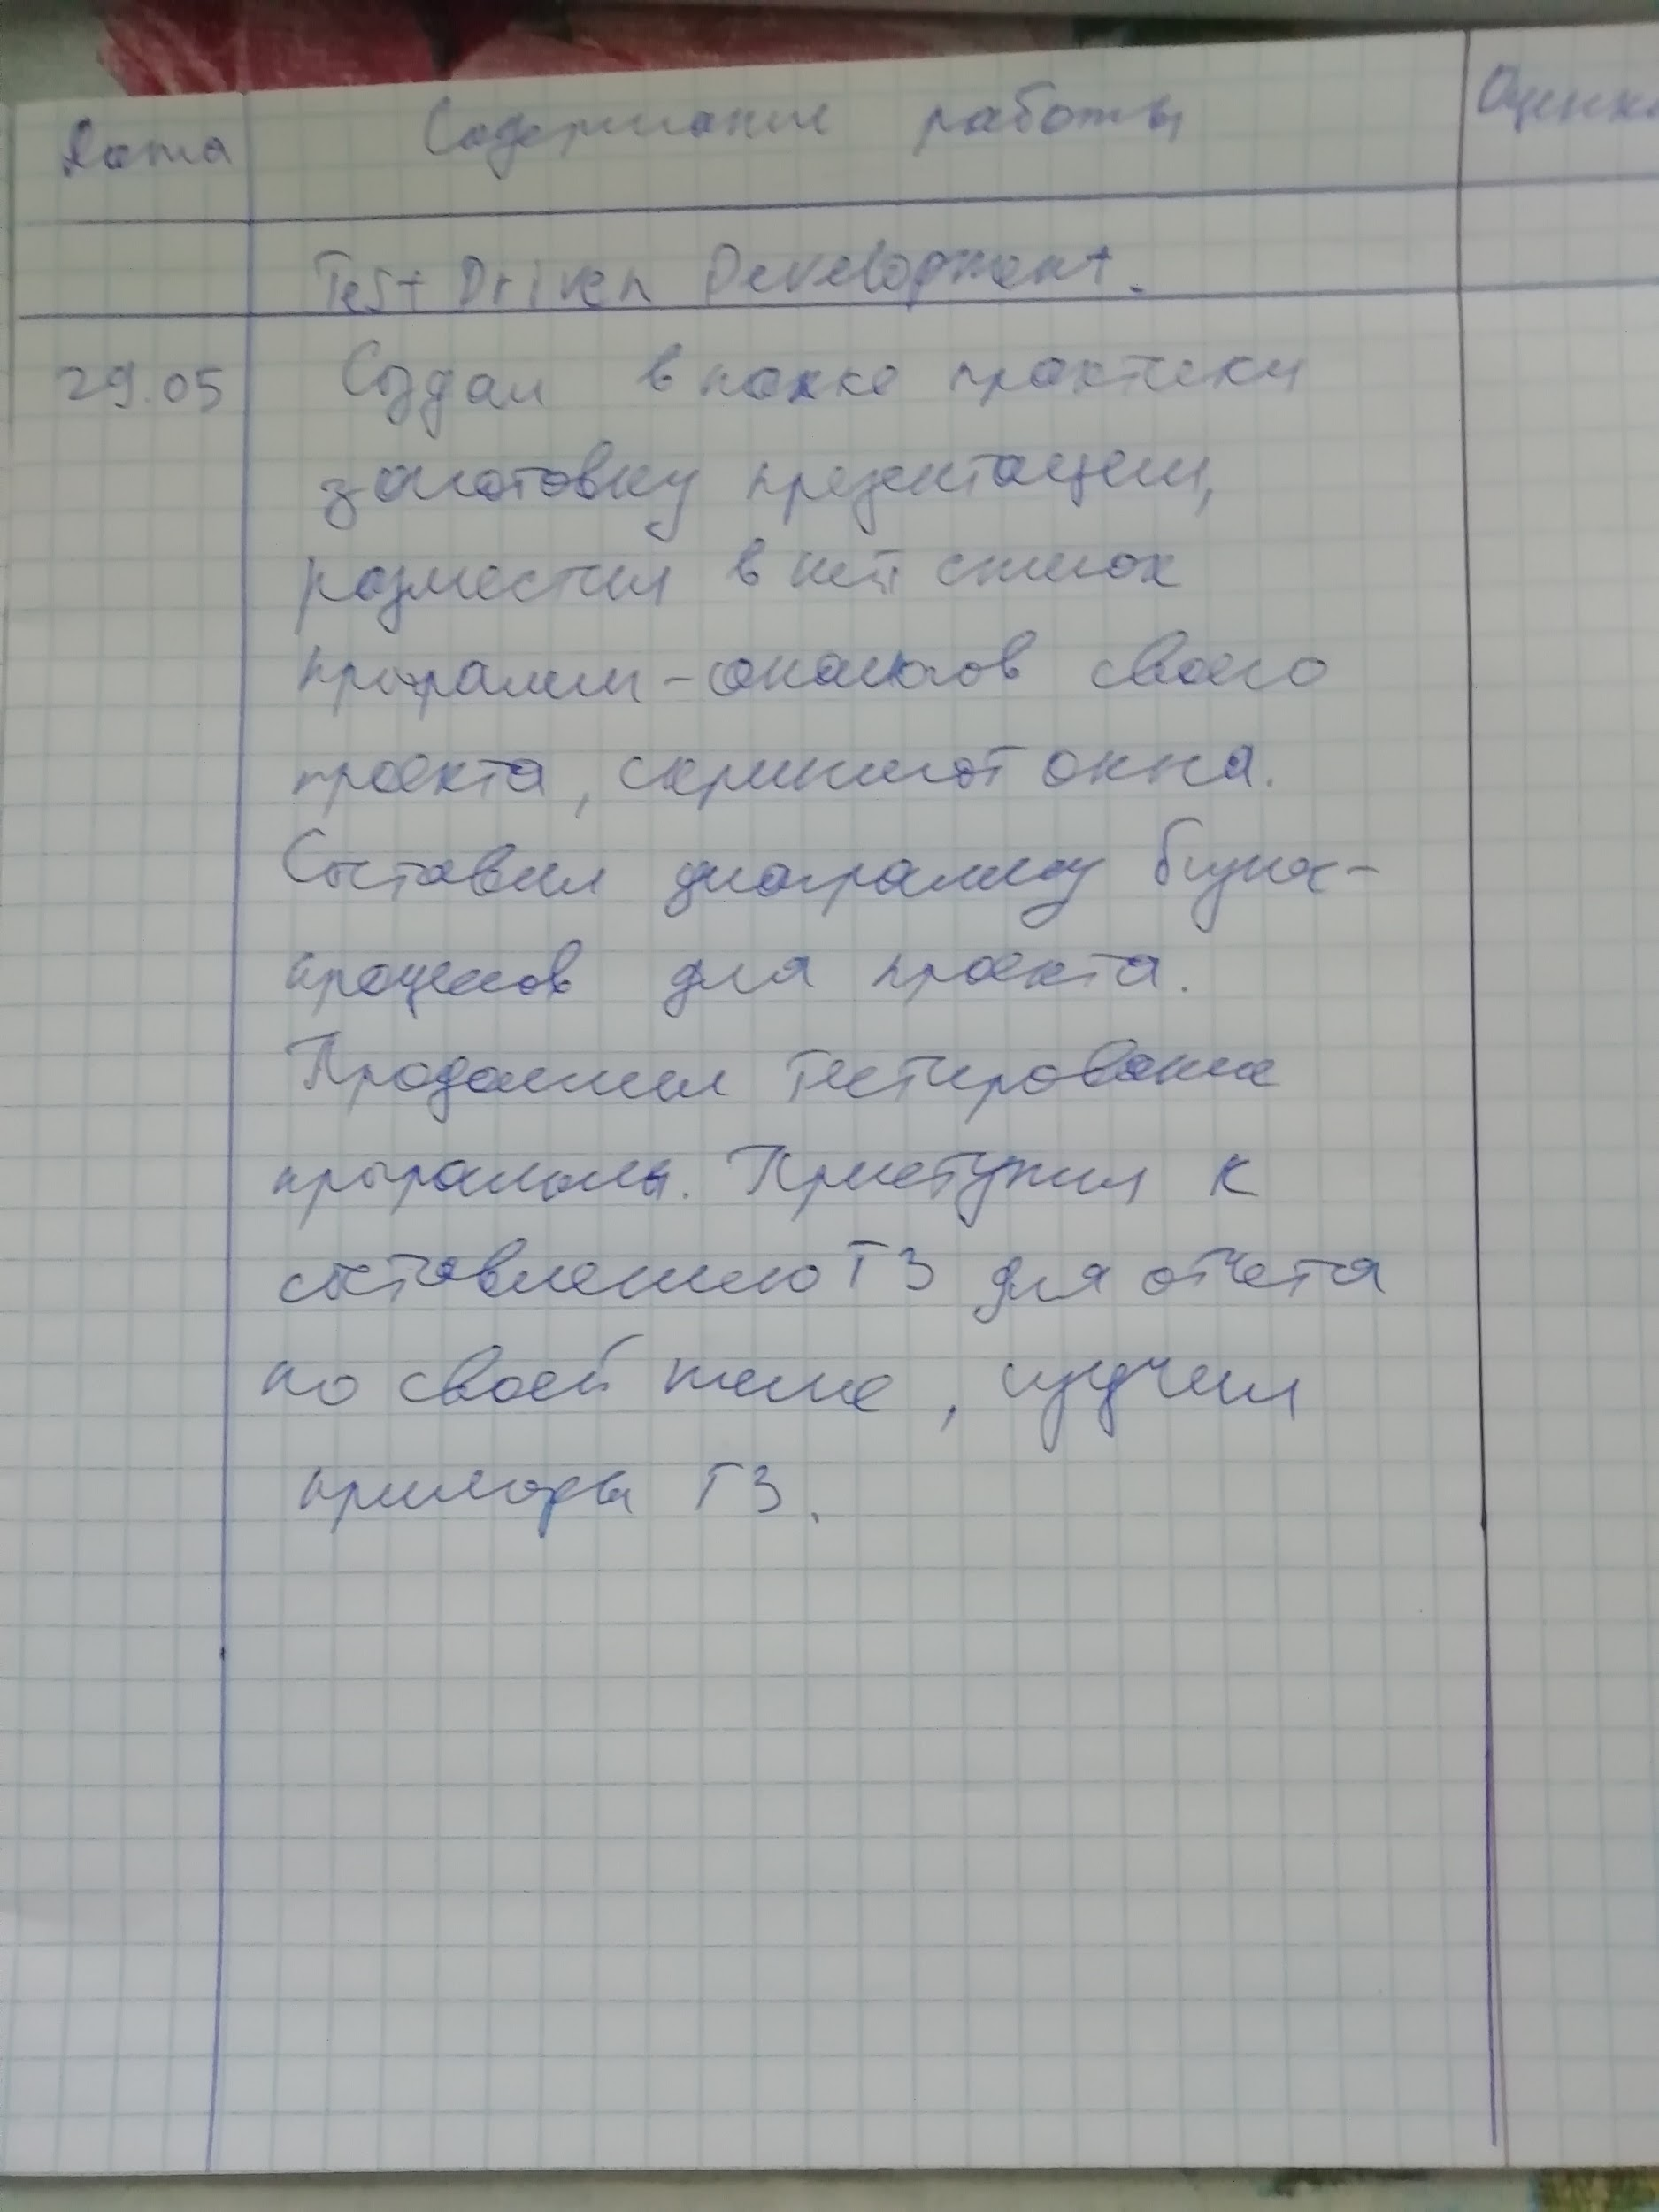 Дата Содержание работы Оценка
Test Driven Development.
29.05 Создал в папке практики
заготовку презентации,
разместил в ней список
программ-аналогов своего
проекта, скриншот окна.
Составил диаграмму бизнес-
процессов для проекта.
Продолжил тестирование
программы. Приступил к
составлению ТЗ для отчета
по своей теме, изучил
примеры ТЗ.